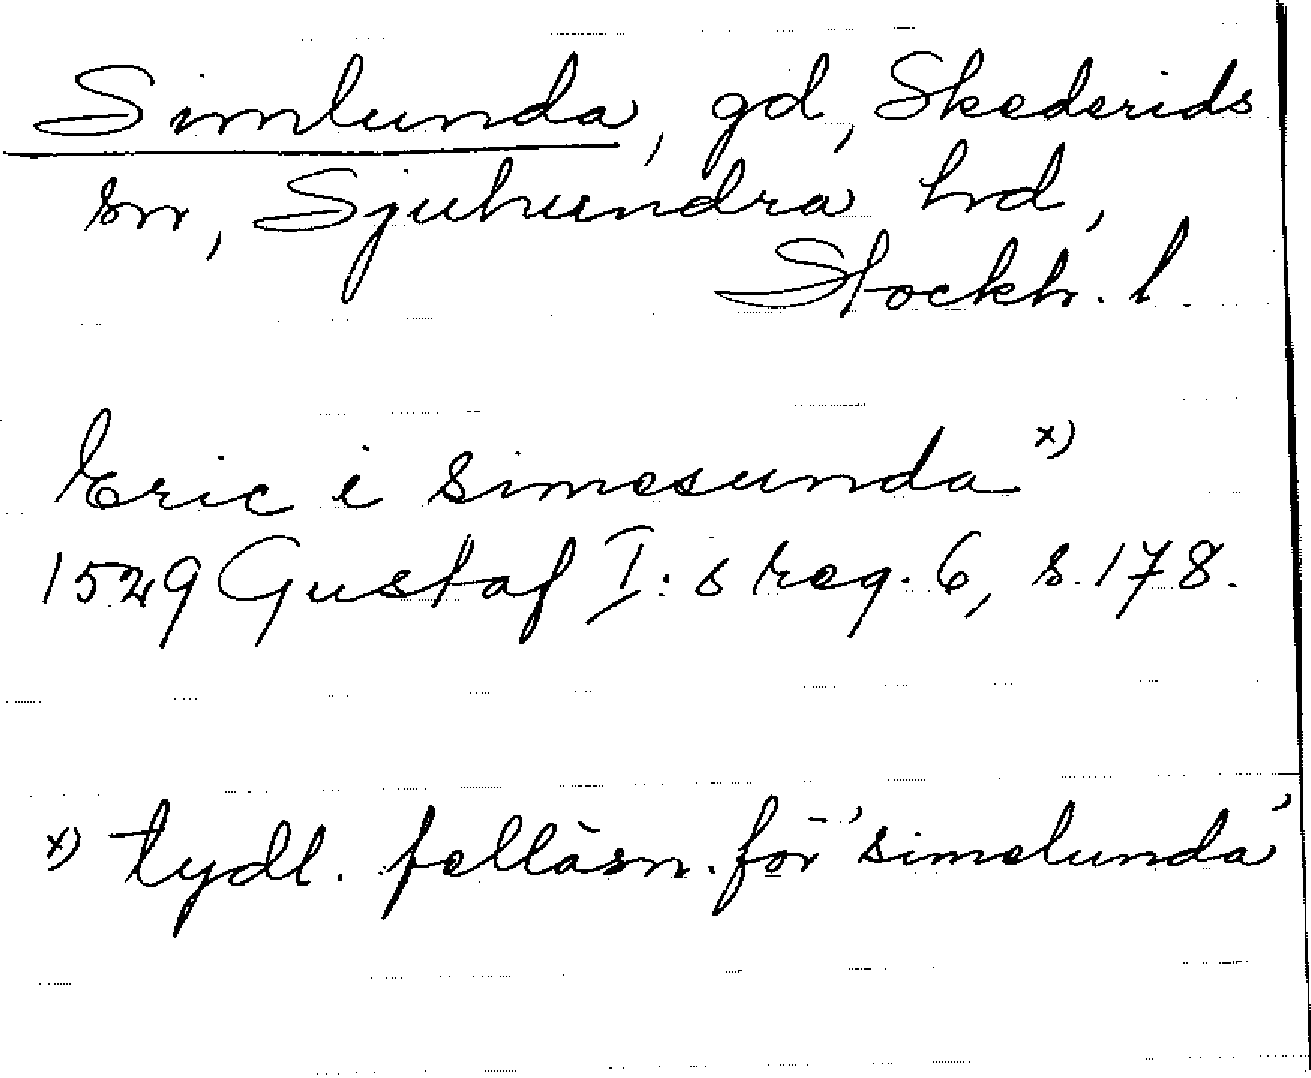 Simlunda, gd, Skederids
sn, Sjuhundra hrd,
Stockh. l.
Eric i simesunda x)
1529 Gustaf I:s reg. 6, s. 178.
x) tydl. felläsn. för 'simelunda'